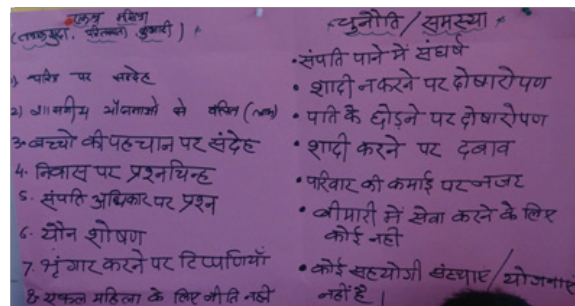 एकल महिला
(तलाकशुदा, परित्यक्ता, कुंवारी)
1) चरित्र पर संदेह
2) शासकीय योजनाओं से वंचित (लाभ)
3. बच्चों की पहचान पर संदेह
4. निवास पर प्रश्नचिन्ह
5. संपति अधिकार पर प्रश्न
6. यौन शोषण
7. श्रृंगार करने पर टिप्पणियाँ
8 एकल महिला के लिए नीति नही
चुनौति / समस्या
• संपति पाने में संघर्ष
• शादी न करने पर दोषारोपण
• पति के छोड़ने पर दोषारोपण
• शादी करने पर दबाव
• परिवार की कमाई पर नजर
• बीमारी में सेवा करने के लिए
कोई नही
• कोई सहयोगी संस्थाएं / योजनाएं
नहीं है